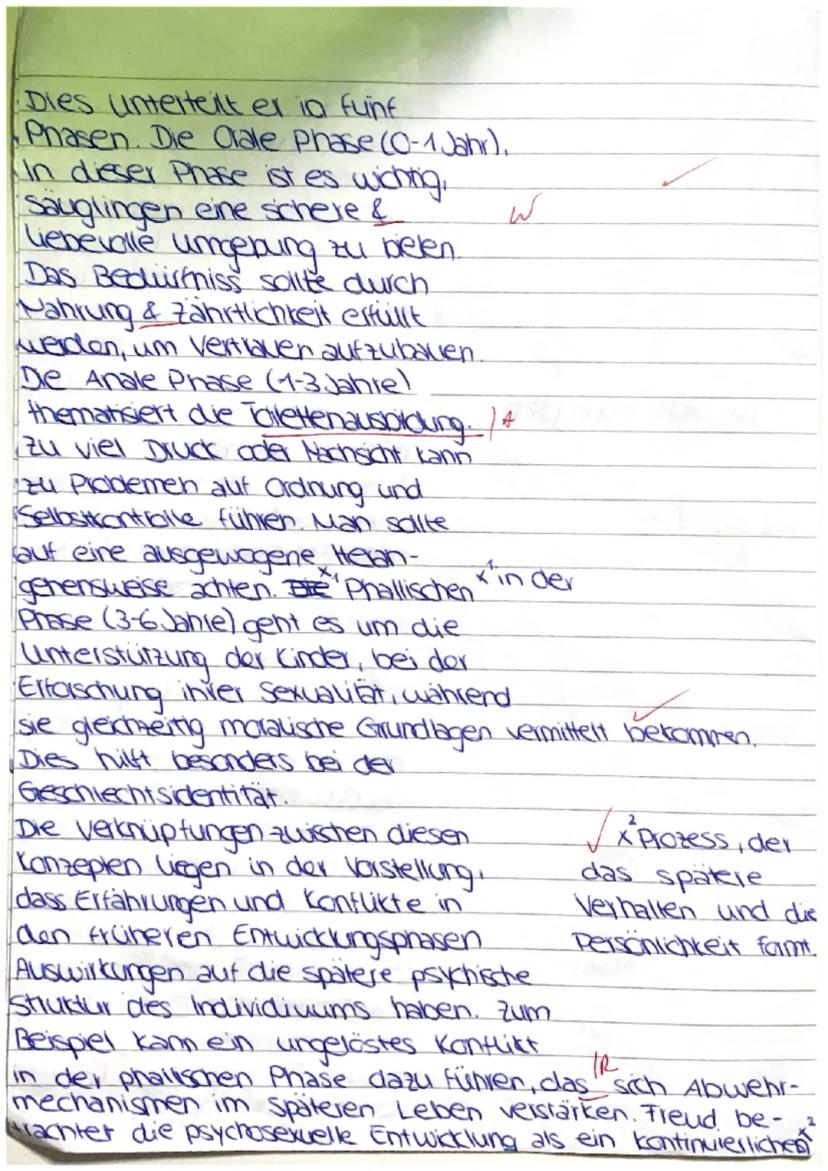 Dies unterteilt er in fünf
Phasen. Die Orale Phase (0-1 Jahr).
In dieser Phase ist es wichtig,
Säuglingen eine sichere &
W
liebevolle umgebung zu bieten.
Das Bedürfniss sollte durch
Nahrung & Zährtlichkeit erfüllt
werden, um Vertrauen aufzubauen.
Die Anale Phase (1-3 Jahre)
thematisiert die Toilettenausbildung. /A
Zu viel Druck oder Nachsicht kann
zu Problemen auf Ordnung und
Selbstkontrolle führen. Man sollte
auf eine ausgewogene Heran-
gehensweise achten. Die x1 Phallischen x1 in der
Phase (3-6 Jahre) geht es um die
Unterstützung der Kinder, bei der
Erforschung ihrer Sexualität, während
sie gleichzeitig moralische Grundlagen vermittelt bekommen.
Dies hilft besonders bei der
Geschlechtsidentität.
Die Verknüpfungen zwischen diesen
Konzepten liegen in der Vorstellung,
dass Erfahrungen und Konflikte in
den früheren Entwicklungsphasen
Auswirkungen auf die spätere psychische
Struktur des Individiuums haben. Zum
Beispiel kann ein ungelöstes Konflikt
in der phallischen Phase dazu führen, das sich Abwehr-
/R
mechanismen im späteren Leben verstärken. Freud be-
trachtet die psychosexuelle Entwicklung als ein kontinuierlichen x2
x2 Prozess, der
das spätere
Verhalten und die
Persönlichkeit formt.